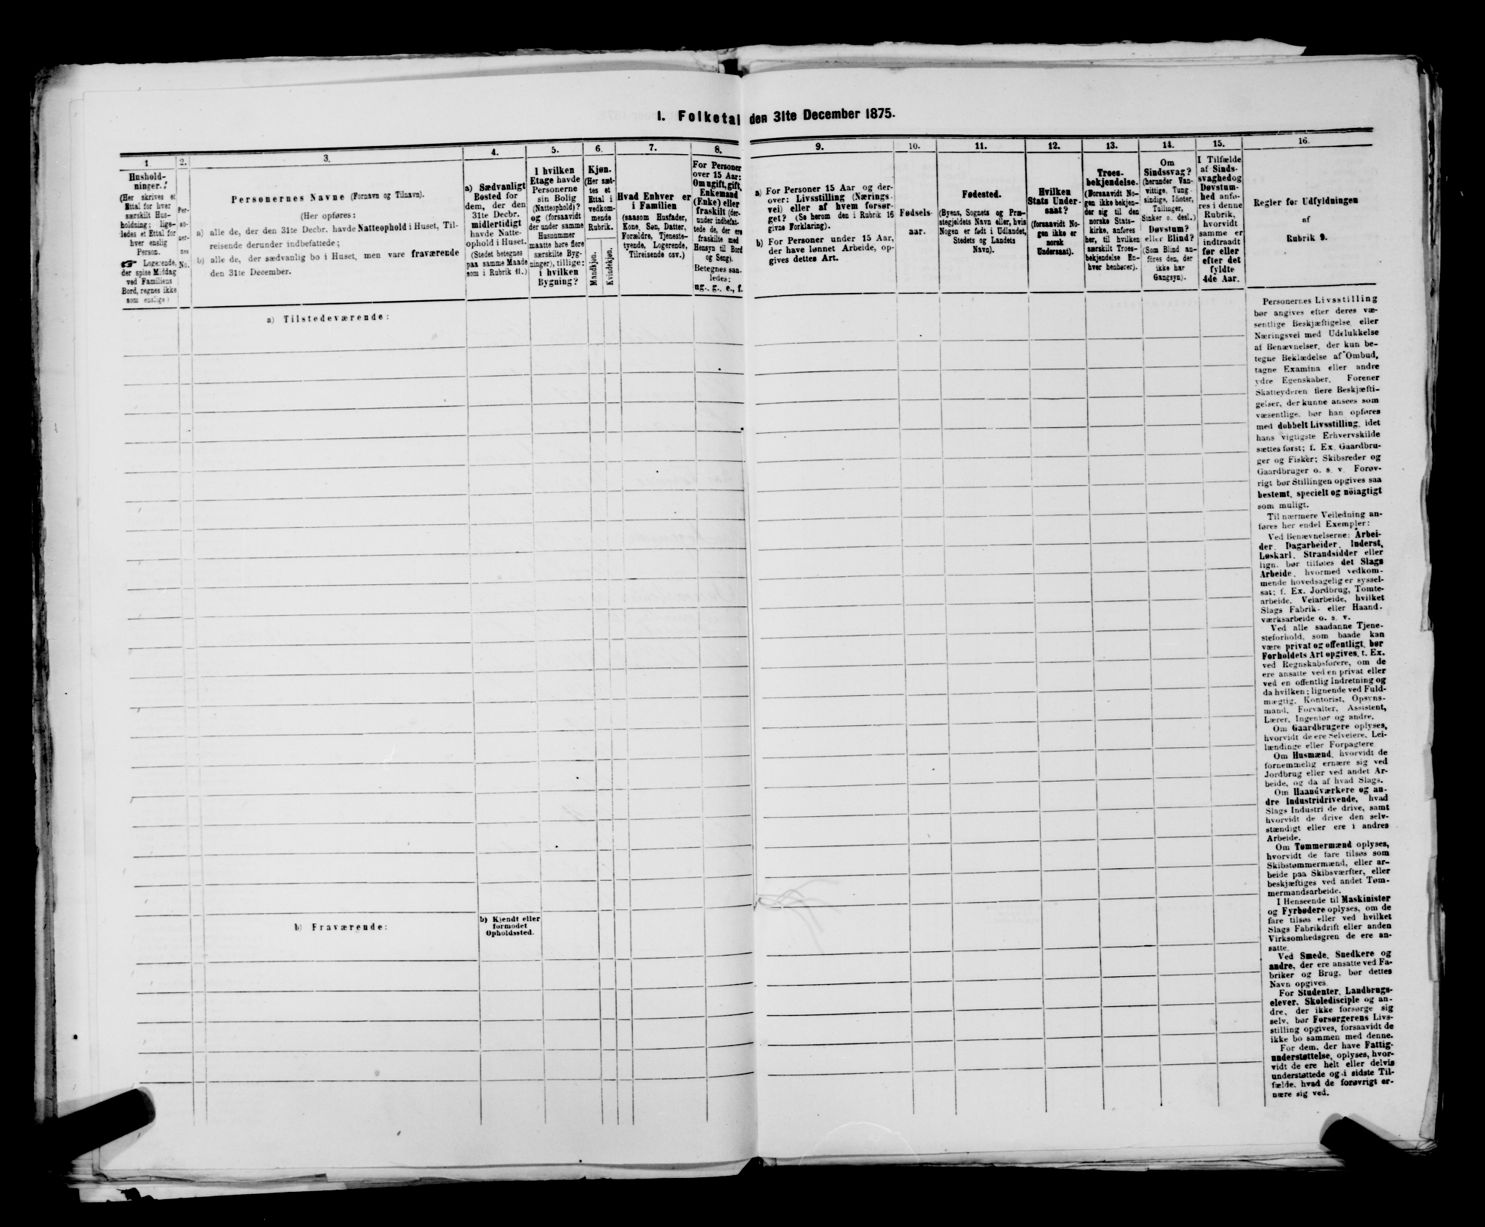 1. Folketal den 31te December 1875.
1.
Hushold-
ninger.
(Her skrives et
Ettal for hver
særskilt Hus-
holdning; lige-
ledes et Ettal for
hver enslig
Person.
Logerende,
der spise Middag
ved Familiens
Bord, regnes ikke
som enslige)
2.
Per-
so-
ner-
nes
No.
3.
Personernes Navne (Fornavn og Tilnavn).
(Her opføres:
a) alle de, der den 31te Decbr. havde Natteophold i Huset, Til-
reisende derunder indbefattede;
b) alle de, der sædvanlig bo i Huset, men vare fraværende
den 31te December.
4.
a) Sædvanligt
Bosted for
dem, der den
31te Decbr.
midlertidigt
havde Natte-
ophold i Huset.
(Stedet betegnes
paa samme Maade
som i Rubrik 11.)
5.
I hvilken
Etage havde
Personerne
sin Bolig
(Natteophold)?
og (forsaavidt
der under samme
Husnummer
maatte høre flere
særskilte Byg-
ninger), tillige:
i hvilken
Bygning?
6.
Kjøn.
(Her sæt-
tes et
Ettal i
vedkom-
mende
Rubrik.
Mandkjøn.
Kvindekjøn.
7.
Hvad Enhver er
i Familien
(saasom Husfader,
Kone, Søn, Datter,
Forældre, Tjeneste-
tyende, Logerende,
Tilreisende osv.)
8.
For Personer
over 15 Aar:
Om ugift, gift,
Enkemand
(Enke) eller
fraskilt (der-
under indbefat-
tede de, der ere
fraskilte med
Hensyn til Bord
og Seng).
Betegnes saa-
ledes:
ug., g., e., f.
9.
a) For Personer 15 Aar og der-
over: Livsstilling (Nærings-
vei) eller af hvem forsør-
get? (Se herom den i Rubrik 16
givne Forklaring).
b) For Personer under 15 Aar,
der have lønnet Arbeide, op-
gives dettes Art.
10.
Fødsels-
aar.
11.
Fødested.
(Byens, Sognets og Præ-
stegjeldets Navn eller, hvis
Nogen er født i Udlandet,
Stedets og Landets
Navn).
12.
Hvilken
Stats Under-
saat?
(forsaavidt No-
gen ikke er
norsk
Undersaat).
13.
Troes-
bekjendelse.
(Forsaavidt No-
gen ikke bekjen-
der sig til den
norske Stats-
kirke, anføres
her, til hvilken
særskilt Troes-
bekjendelse En-
hver henhører).
14.
Om
Sindssvag?
(herunder Van-
vittige, Tung-
sindige, Idioter,
Tullinger,
Sinker o. desl.,)
Døvstum?
eller Blind?
(Som Blind an-
føres den, der
ikke har
Gangsyn).
15.
I Tilfælde
af Sinds-
svaghed og
Døvstum-
hed anfø-
res i denne
Rubrik,
hvorvidt
samme er
indtraadt
før eller
efter det
fyldte
4de Aar.
16.
Regler før Udfyldningen
af
Rubrik 9.
Personernes Livsstilling
bør angives efter deres væ-
sentlige Beskjæftigelse eller
Næringsvei med Udelukkelse
af Benævnelser, der kun be-
tegne Beklædelse af Ombud,
tagne Examina eller andre
ydre Egenskaber. Forener
Skatteyderen flere Beskjæfti-
gelser, der kunne ansees som
væsentlige, bør han opføres
med dobbelt Livsstilling, idet
hans vigtigste Erhvervskilde
sættes først; f. Ex. Gaardbru-
ger og Fisker; Skibsreder og
Gaardbruger o. s. v. Forøv-
rigt bør Stillingen opgives saa
bestemt, specielt og nöiagtigt
som muligt.
Til nærmere Veiledning an-
føres her endel Exempler:
Ved Benævnelserne: Arbei-
der, Dagarbeider, Inderst,
Løskarl, Strandsidder eller
lign. bør tilføies det Slags
Arbeide, hvormed vedkom-
mende hovedsagelig er syssel-
sat; f. Ex. Jordbrug, Tomte-
arbeide, Veiarbeide, hvilket
Slags Fabrik- eller Haand-
værksarbeide o. s. v.
Ved alle saadanne Tjene-
steforhold, som baade kan
være privat og offentligt, bør
Forholdets Art opgives, f. Ex.
ved Regnskabsførere, om de
ere ansatte ved en privat eller
ved en offentlig Indretning og
da hvilken; lignende ved Fuld-
mægtig, Kontorist, Opsyns-
mand, Forvalter, Assistent,
Lærer, Ingeniør og andre.
Om Gaardbrugere oplyses,
hvorvidt de ere Selveiere, Lei-
lændinge eller Forpagtere.
Om Husmænd, hvorvidt de
fornemmelig ernære sig ved
Jordbrug eller ved andet Ar-
beide, og da af hvad Slags.
Om Haandværkere og an-
dre Industridrivende, hvad
Slags Industri de drive, samt
hvorvidt de drive den selv-
stændigt eller ere i andres
Arbeide.
Om Tømmermænd oplyses,
hvorvidt de fare tilsøs som
Skibstømmermænd, eller ar-
beide paa Skibsværfter, eller
beskjæftiges ved andet Tøm-
mermandsarbeide.
I Henseende til Maskinister
og Fyrbødere oplyses, om de
fare tilsøs eller ved hvilket
Slags Fabrikdrift eller anden
Virksomhedsgren de ere an-
satte.
Ved Smede, Snedkere og
andre, der ere ansatte ved Fa-
briker og Brug, bør dettes
Navn opgives.
For Studenter, Landbrugs-
elever, Skoledisciple og an-
dre, der ikke forsørge sig
selv, bør Forsørgerens Livs-
stilling opgives, forsaavidt de
ikke bo sammen med denne.
For dem, der have Fattig-
understøttelse, oplyses, hvor-
vidt de ere helt eller delvis
understøttede og i sidste Til-
fælde, hvad de forøvrigt er-
nære sig ved.
a) Tilstedeværende:
b) Fraværende:
b) Kjendt eller
formodet
Opholdssted.